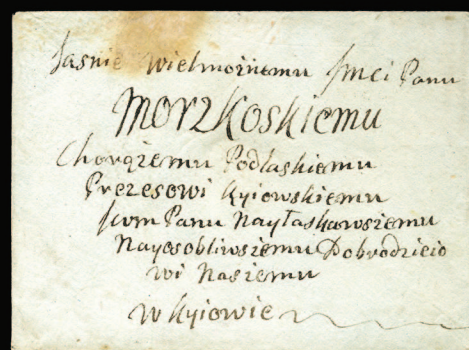 Jasnie Wielmożnemu Jmci Panu
Morzkoskiemu
Chorążemu Podlaskiemu
Prezesowi Kyiowskiemu
Jwm Panu Nayłaskawszemu
Nayosobliwszemu Dobrodzieio
wi Naszemu
w Kyiowie